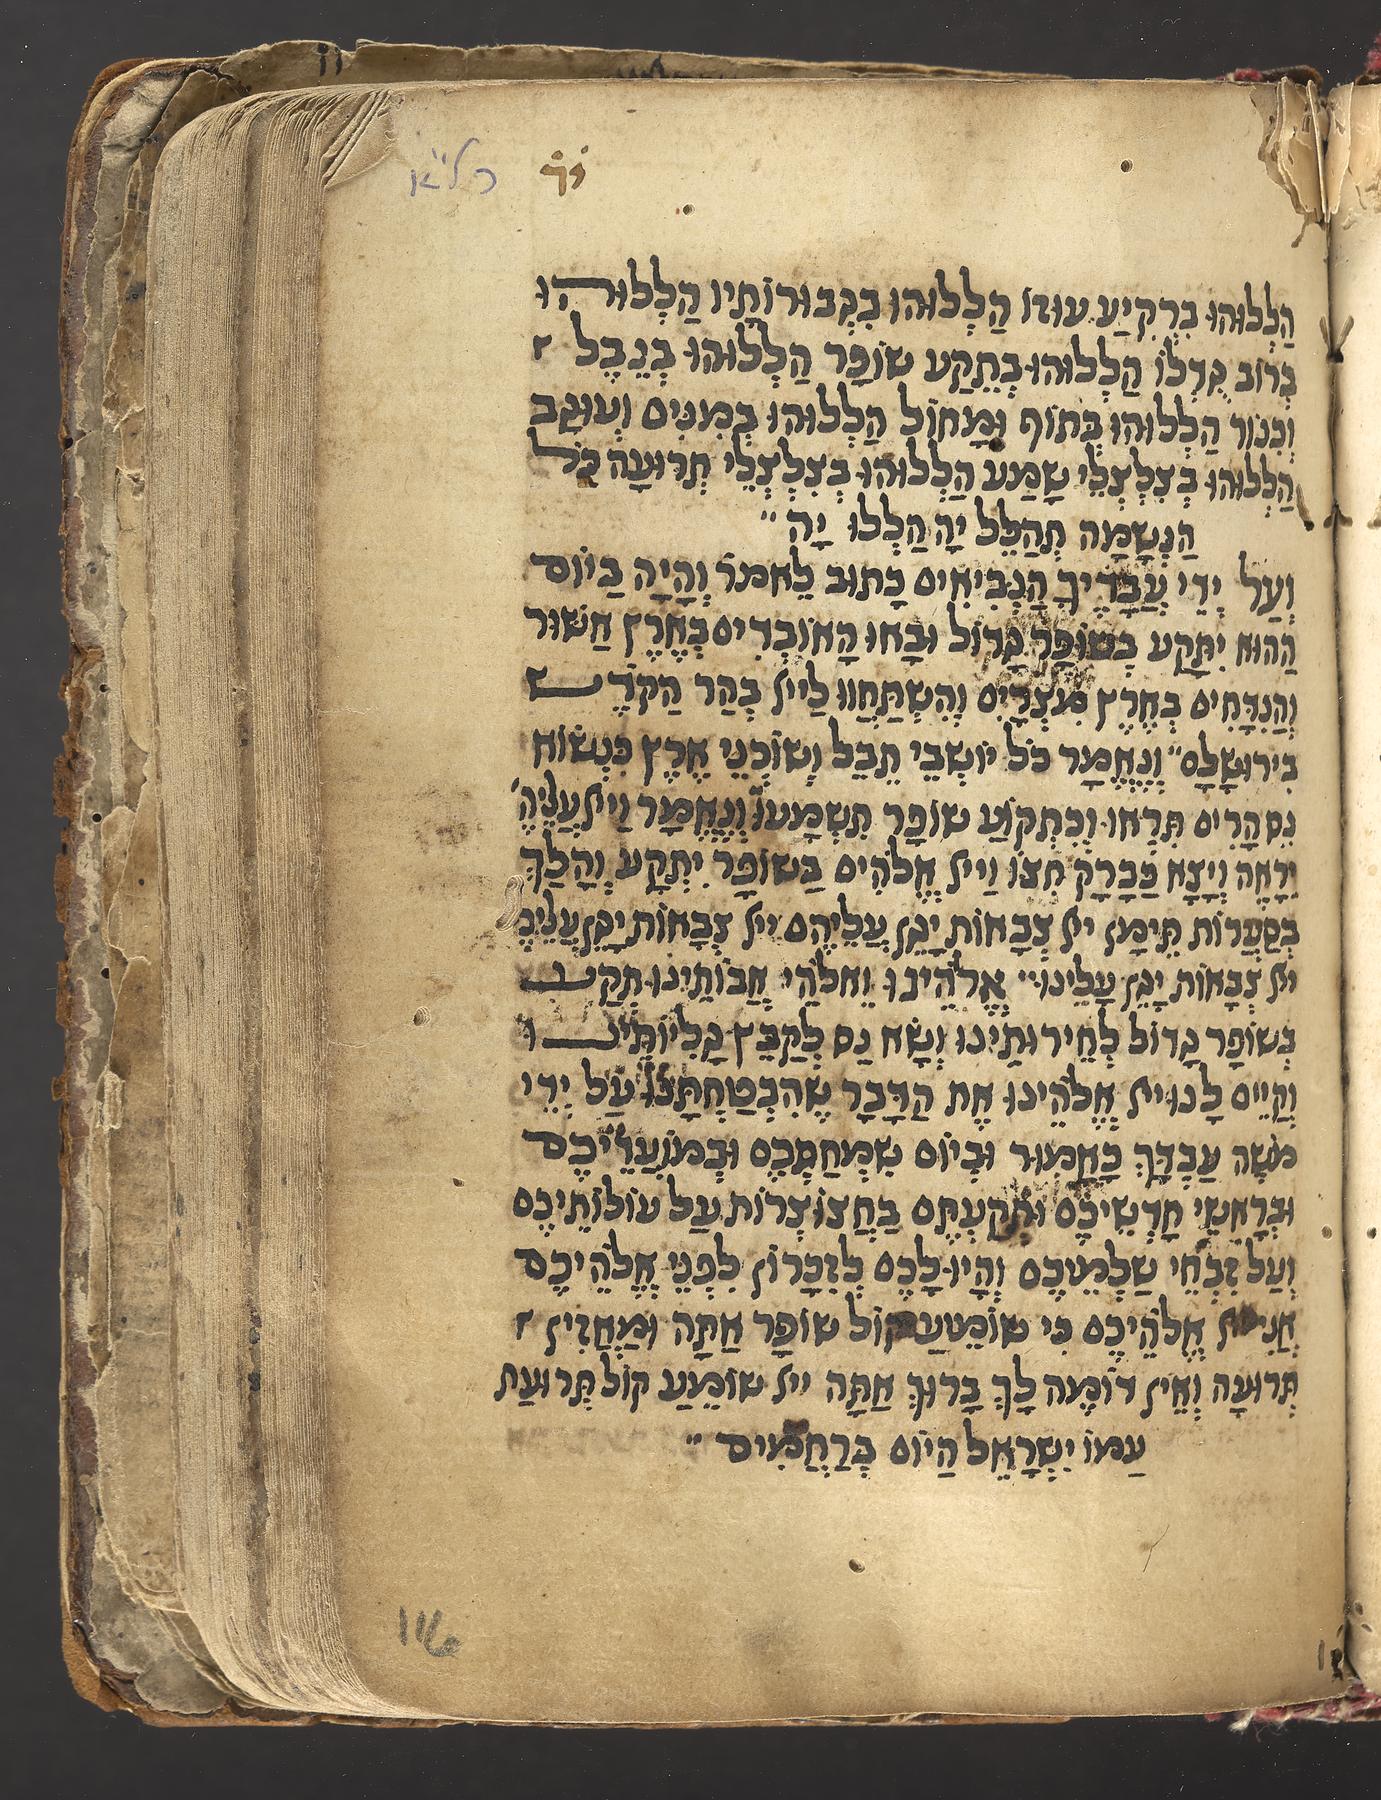 יד רל״א
הַלְלוּהוּ בִּרְקִיעַ עוּזוֹ הַלְלוּהוּ בִגְבוּרוֹתָיו הַלְלוּהוּ
בְּרוֹב גֻּדְלוֹ הַלְלוּהוּ בְּתֵקַע שׁוֹפָר הַלְלוּהוּ בְּנֵבֶל
וְכִנּוֹר הַלְלוּהוּ בְּתוֹף וּמָחוֹל הַלְלוּהוּ בְּמִנִּים וְעוּגָב
הַלְלוּהוּ בְצִלְצְלֵי שָׁמַע הַלְלוּהוּ בְּצִלְצְלֵי תְרוּעָה כֹּל
הַנְּשָׁמָה תְּהַלֵּל יָהּ הַלְלוּ יָהּ ״
וְעַל יְדֵי עֲבָדֶיךָ הַנְּבִיאִים כָּתוּב לֵאמֹר וְהָיָה בַּיּוֹם
הַהוּא יִתָּקַע בְּשׁוֹפָר גָּדוֹל וּבָאוּ הָאוֹבְדִים בְּאֶרֶץ אַשּׁוּר
וְהַנִּדָּחִים בְּאֶרֶץ מִצְרָיִם וְהִשְׁתַּחֲווּ לַייָ בְּהַר הַקֹּדֶשׁ
בִּירוּשָׁלָםִ ״ וְנֶאֱמָר כֹּל יוֹשְׁבֵי תֵבֵל וְשׁוֹכְנֵי אֶרֶץ כִּנְשׂוֹא
נֵס הָרִים תִּרְאוּ וְכִתְקוֹעַ שׁוֹפָר תִּשְׁמָעוּ וְנֶאֱמָר וַייָ עֲלֵיהֶ׳
יֵרָאֶה וְיָצָא כַבָּרָק חִצּוֹ וַייָ אֱלֹהִים בַּשּׁוֹפָר יִתְקָע וְהָלַךְ
בְּסַעֲרוֹת תֵּימָן יְיָ צְבָאוֹת יָגֵן עֲלֵיהֶם יְיָ צְבָאוֹת יָגֵן עֲלֵיכֶ׳
יְיָ צְבָאוֹת יָגֵן עָלֵינוּ ״ אֱלֹהֵינוּ וֵאלֹהֵי אֲבוֹתֵינוּ תְּקַע
בְּשׁוֹפָר גָּדוֹל לְחֵירוּתֵינוּ וְשָׂא נֵס לְקַבֵּץ גָּלִיּוֹתֵינוּ
וְקַיֵּים לָנוּ יְיָ אֱלֹהֵינוּ אֶת הַדָּבָר שֶׁהִבְטַחְתָּנוּ עַל יְדֵי
מֹשֶׁה עַבְדָּךְ כָּאָמוּר וּבְיוֹם שִׂמְחַתְכֶם וּבְמוֹעֲדֵיכֶם
וּבְרָאשֵׁי חָדְשֵׁיכֶם וּתְקַעְתֶּם בַּחֲצוֹצְרוֹת עַל עוֹלוֹתֵיכֶם
וְעַל זִבְחֵי שַׁלְמֵיכֶם וְהָיוּ לָכֶם לְזִכָּרוֹן לִפְנֵי אֱלֹהֵיכֶם
אֲנִי יְיָ אֱלֹהֵיכֶם כִּי שׁוֹמֵעַ קוֹל שׁוֹפָר אַתָּה וּמַאֲזִין
תְּרוּעָה וְאֵין דּוֹמֶה לָךְ בָּרוּךְ אַתָּה יְיָ שׁוֹמֵעַ קוֹל תְּרוּעַת
עַמּוֹ יִשְׂרָאֵל הַיּוֹם בְּרַחֲמִים ״